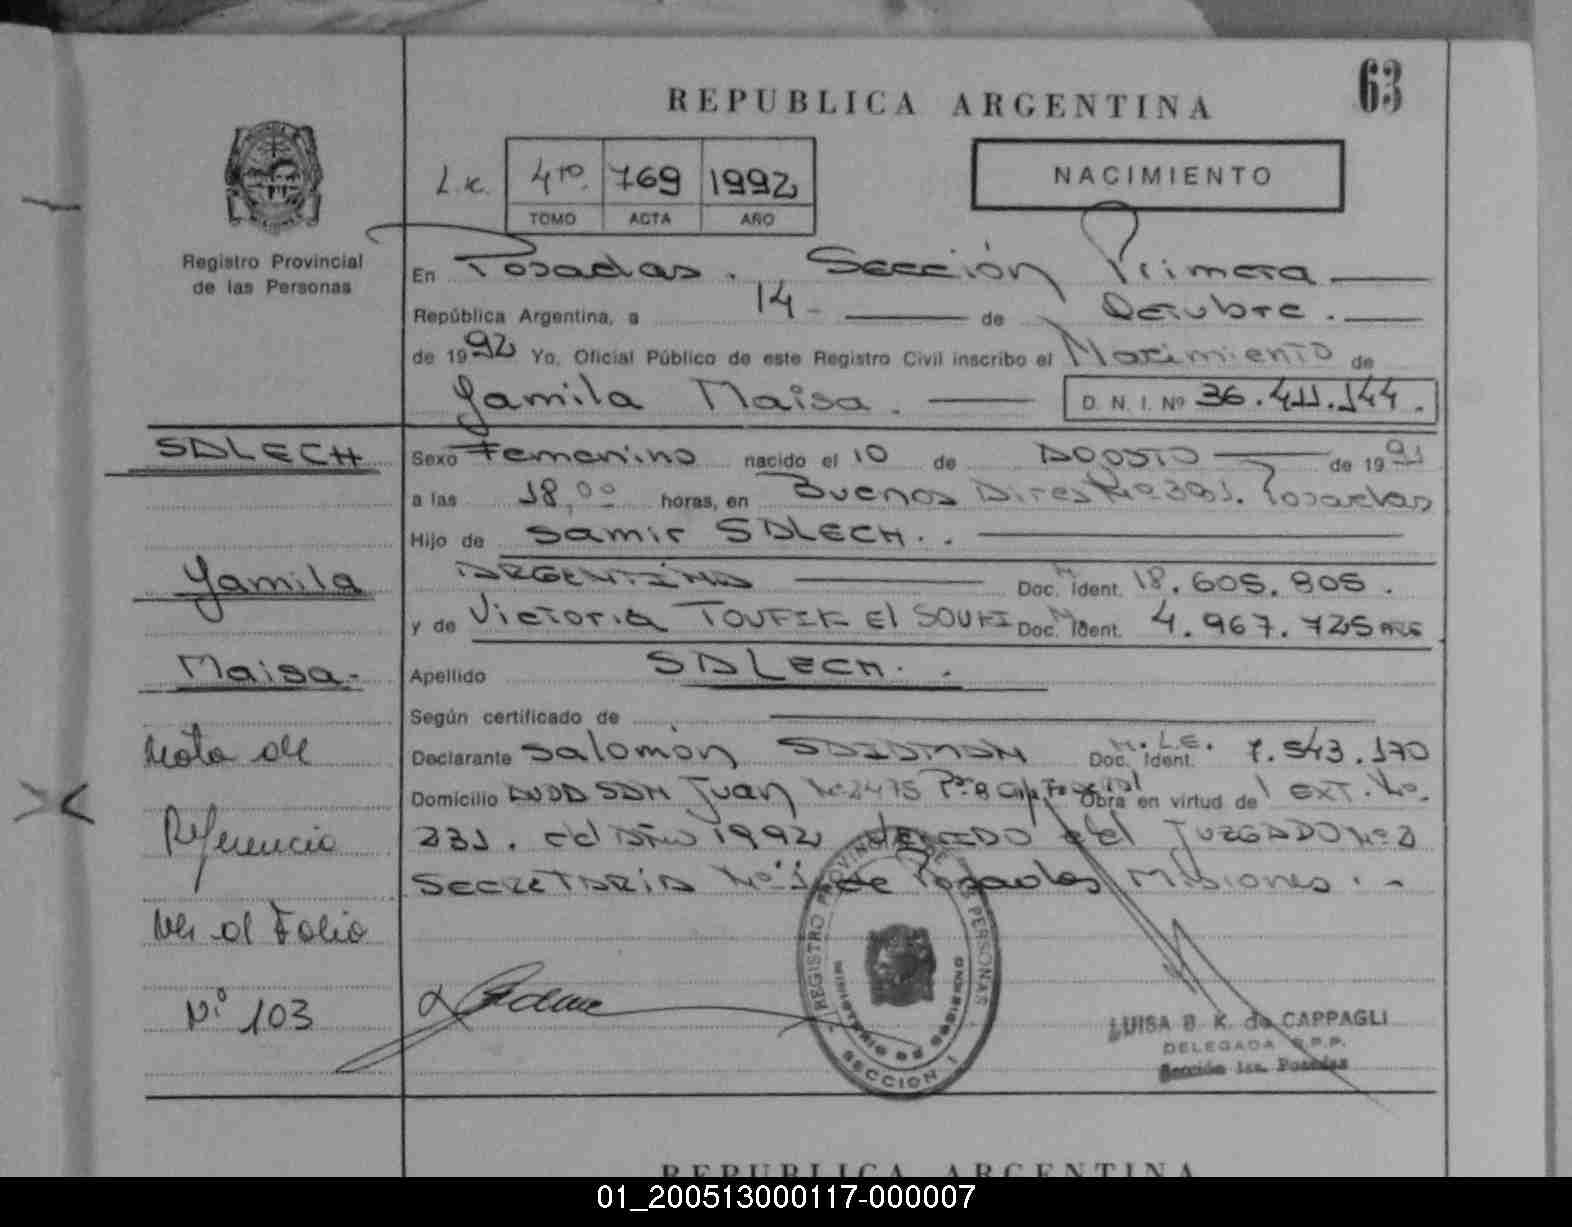 63
REPUBLICA ARGENTINA
NACIMIENTO
4to. 769 1992
TOMO ACTA AÑO
Registro Provincial
de las Personas
En Posadas. Sección Primera
República Argentina, a 14 - de Octubre.
de 1992 Yo, Oficial Público de este Registro Civil inscribo el Nacimiento de
Yamila Maisa. D. N. I. Nº 36.411.144.
SALECH
Sexo Femenino nacido el 10 de Agosto de 1991
a las 18,00 horas, en Buenos Aires Nº 391. Posadas
Hijo de Samir SALECH.
Yamila
ARGENTINA Doc. Ident. 18.605.905.
y de Victoria TOUFIK El SOUKI Doc. Ident. 4.967.725 ARG
Maisa.-
Apellido SALECH.
Según certificado de
Nota de
Declarante Salomón M.L.E. Doc. Ident. 7.543.170
Domicilio AVDA SAN Juan Nº 2475 Obra en virtud de EXT. No.
Referencia
231. del Año 1992 del JUZGADO Nº 2
SECRETARIA Nº 1 de Posadas Misiones.-
Ver al Folio
Nº 103
REGISTRO PROVINCIAL DE LAS PERSONAS
MINISTERIO DE GOBIERNO
SECCION 1
LUISA B. K. de CAPPAGLI
DELEGADA R.P.P.
Sección 1ra. Posadas
REPUBLICA ARGENTINA
01_200513000117-000007